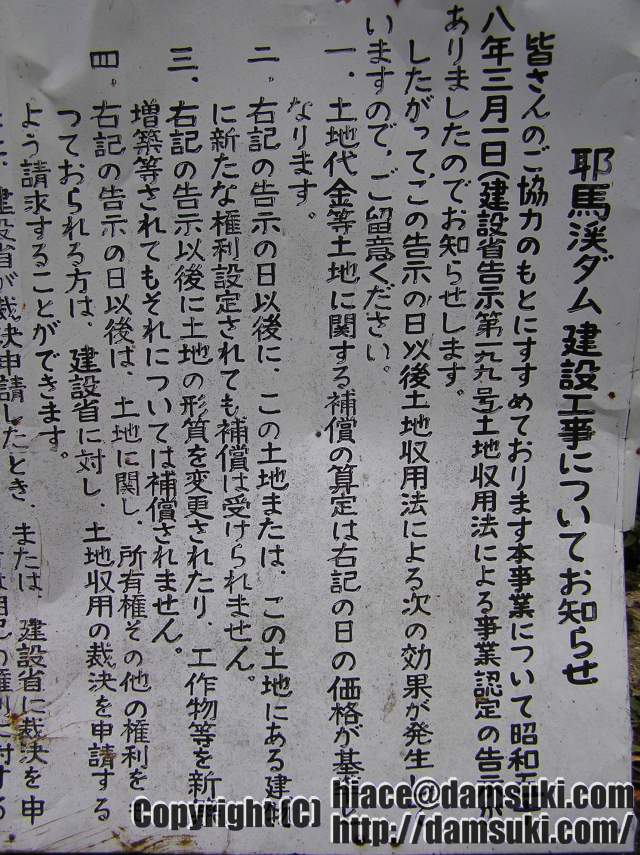 耶馬溪ダム建設工事についてお知らせ
皆さんのご協力のもとにすすめております本事業について昭和
八年三月一日(建設省告示第一九九号土地収用法による事業認定の告示が
ありましたのでお知らせします。
したがって、この告示の日以後土地収用法による次の効果が発生し
いますので、ご留意ください。
一、土地代金等土地に関する補償の算定は右記の日の価格が基
なります。
二、右記の告示の日以後に、この土地または、この土地にある建物
に新たな権利設定されても補償は受けられません。
三、右記の告示以後に土地の形質を変更されたり、工作物等を新
増築等されてもそれについては補償されません。
四、右記の告示の日以後は、土地に関し、所有権その他の権利を
っておられる方は、建設省に対し、土地収用の裁決を申請する
よう請求することができます。
建設省が裁決申請したとき、または、建設省に裁決を申
Copyright(C) hiace@damsuki.com
http://damsuki.com/